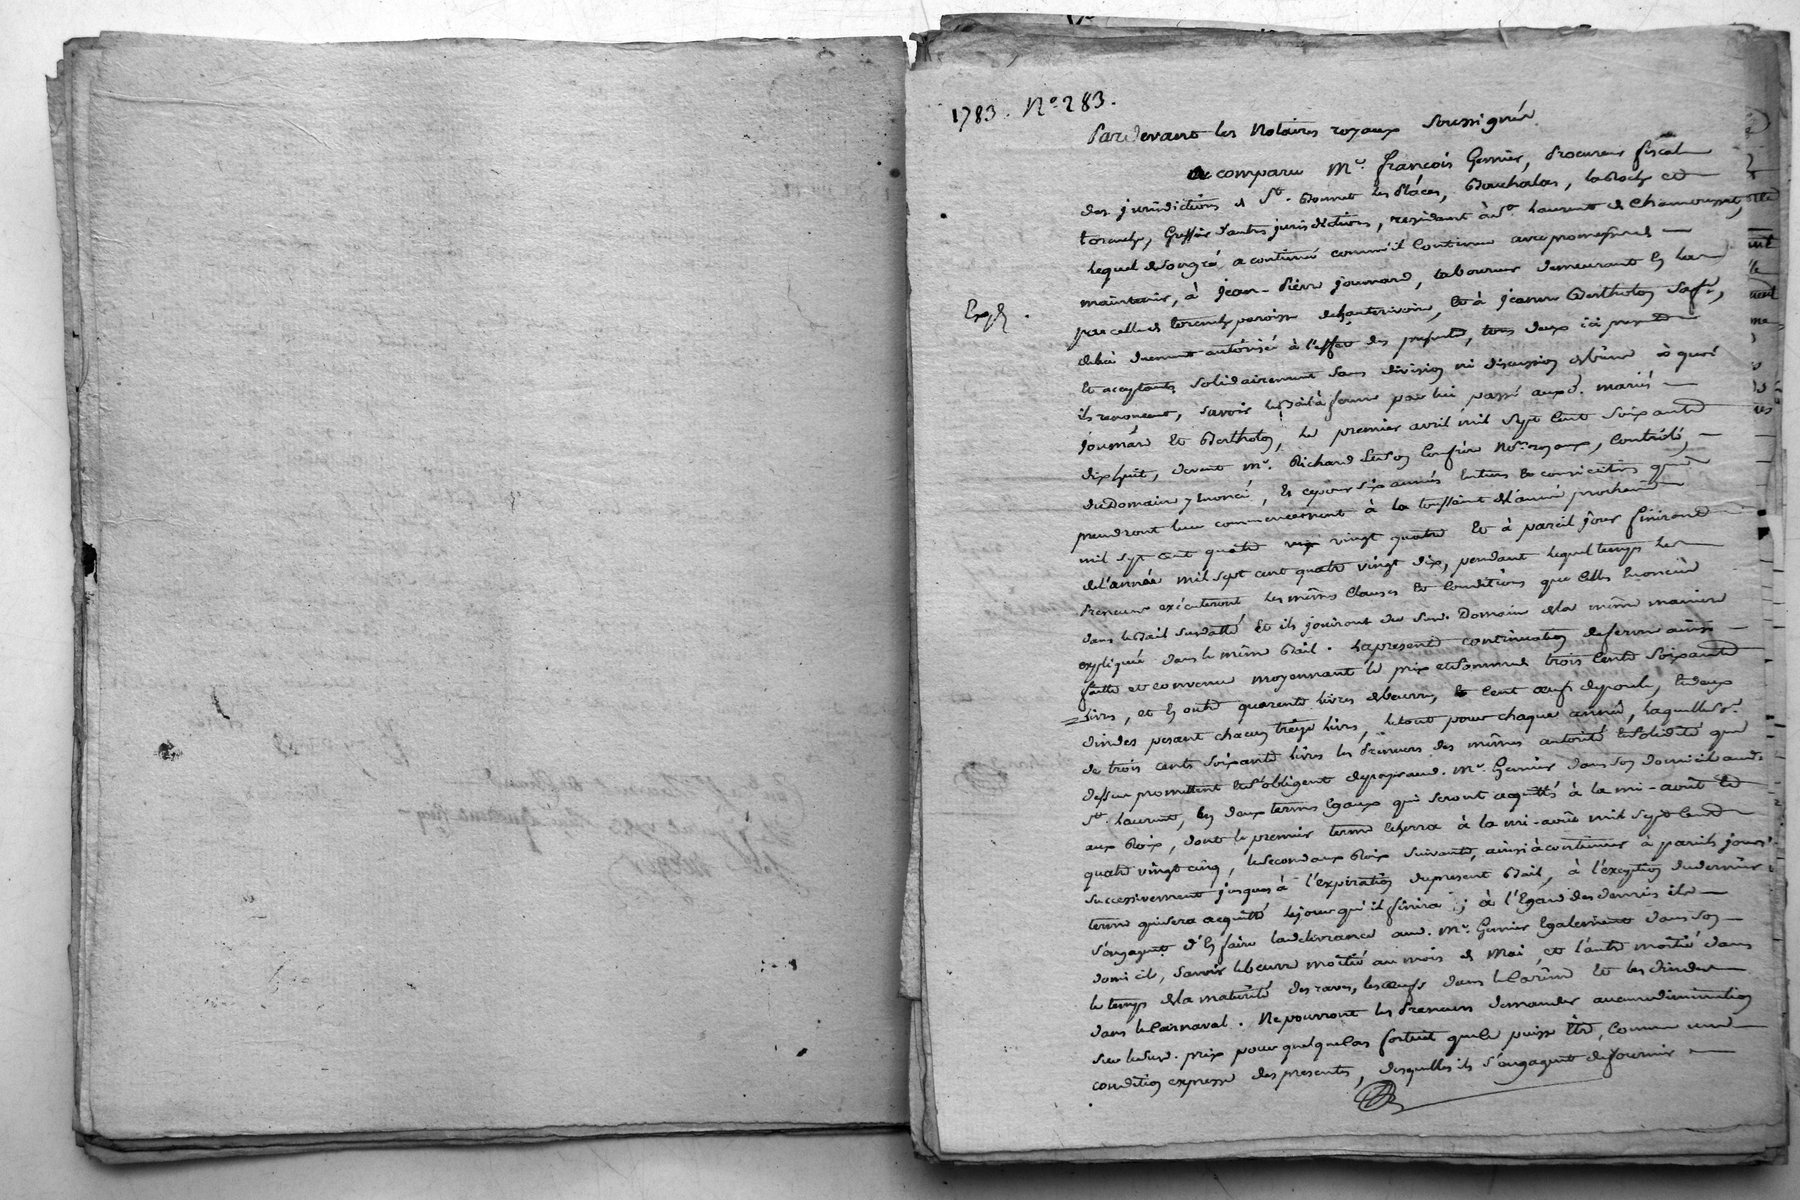 1783. N.º 283.
Pardevant les Notaires royaux soussignés
a comparu M.e françois Gervais, Procureur fiscal
des jurisdictions de St. Bonnet les Places,
torenche, Greffier d'autres jurisdictions, residant à St. Laurent de Chamousset,
Lequel de son gré a continué comme il continue avec promesse de
maintenir, à jean-pierre joumard, laboureur demeurant en la
parcelle de torenche paroisse de hauterivoire, et à jeanne Bertholon sa fe.,
de lui duement autorisée à l'effet des presentes, tous deux ici presents
Et acceptants solidairement sans division ni discussion de biens à quoi
ils renoncent, savoir le Bail à ferme par lui passé auxd. mariés
joumard et Bertholon, le premier avril mil sept cent soixante
dix huit, devant m.e Richard Lun confrère No.re royaux, Contrôlé,
du Domaine y énoncé, Et ce pour six années entieres & consécutives qui
prendront leur commencement à la toussaint de l'année prochaine
mil sept cent quatre vingt quatre Et à pareil jour finiront
de l'année mil sept cent quatre vingt dix, pendant lequel temps les
Preneurs exécuteront les mêmes Clauses Et Conditions que celles Enoncées
dans le Bail susdatté Et ils jouiront du susd. Domaine de la même maniere
expliquée dans le même Bail. La presente continuation de ferme ainsi
faitte et convenue moyennant le prix et somme de trois Cents soixante
Livres, et En outre quarente livres de beurre, Cent oeufs de poule, Et deux
dindes pesant chacun treize livres, le tout pour chaque année, laquelle se.
de trois cents soixante livres les Preneurs des mêmes autorité & solidité que
dessus promettent et s'obligent de payer aud. M.e Gervais dans son domicile aud.
St. Laurent, En deux termes Egaux qui seront acquittés à la mi-août Et
aux Rois, dont le premier terme Echerra à la mi-août mil sept cent
quatre vingt cinq, le second aux Rois suivants, ainsi à continuer à pareils jours
successivement jusques à l'expiration du present Bail, à l'exception du dernier
terme qui sera acquitté le jour qu'il finira ; à l'Egard des denrées ils
s'engagent d'En faire la delivrance aud. M.e Gervais Egalement dans son
domicile, savoir le beurre moitié au mois de Mai, et l'autre moitié dans
le temps de la maturité des raves, les oeufs dans le Carême Et les dindes
dans le Carnaval. Ne pourront les Preneurs demander aucune diminution
sur le susd. prix pour quelque cas fortuit que ce puisse Etre, comme une
condition expresse des presentes, desquelles ils s'engagent de fournir